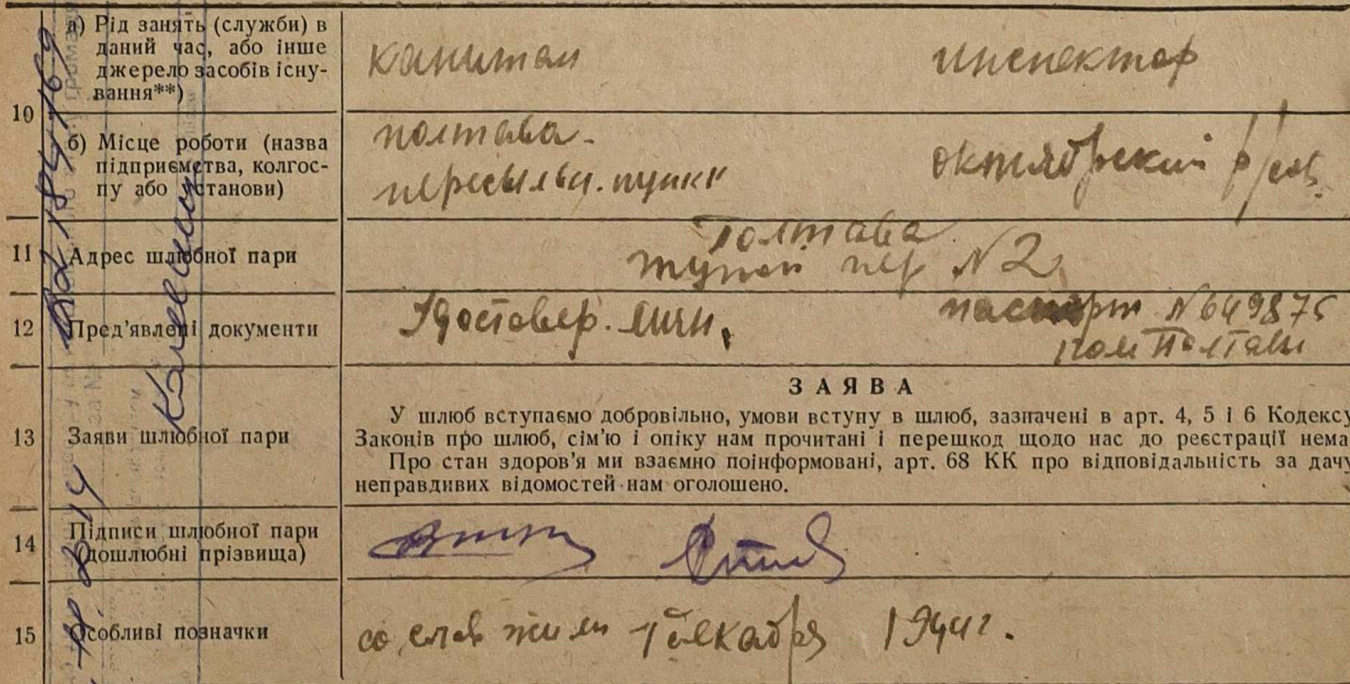 10
а) Рід занять (служби) в
даний час, або інше
джерело засобів існу-
вання**)
капитан
инспектор
б) Місце роботи (назва
підприємства, колгос-
пу або установи)
полтава-
пересыльн. пункт
октябрский р/
11
Адрес шлюбної пари
Полтава
тупой пер №2
12
Пред'явлені документи
Удостовер. личн.
паспорт №649875
Полтавы
13
Заяви шлюбної пари
ЗАЯВА
У шлюб вступаємо добровільно, умови вступу в шлюб, зазначені в арт. 4, 5 і 6 Кодексу
Законів про шлюб, сім'ю і опіку нам прочитані і перешкод щодо нас до реєстрації нема
Про стан здоров'я ми взаємно поінформовані, арт. 68 КК про відповідальність за дачу
неправдивих відомостей нам оголошено.
14
Підписи шлюбної пари
(дошлюбні прізвища)
15
Особливі позначки
со слов жили 1 декабря 1944г.